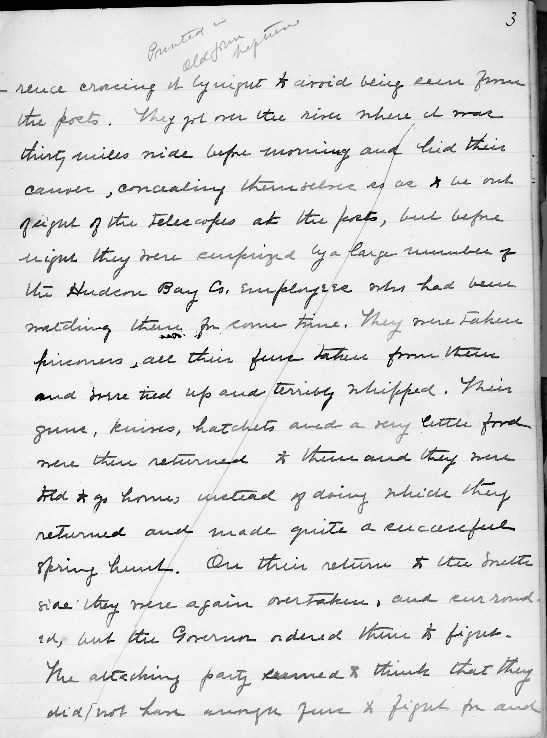 3
Printed in
Old John
Neptune
rence crossing it by night to avoid being seen from
the posts. They got over the river where it was
thirty miles wide before morning and hid their
canoes, concealing themselves so as to be out
of sight of the telescopes at the posts, but before
night they were surprized by a large number of
the Hudson Bay Co. Employees who had been
watching them for some time. They were taken
prisoners, all their furs taken from them
and were tied up and terribly whipped. Their
guns, knives, hatchets and a very little food
were then returned to them and they were
told to go home; instead of doing which they
returned and made quite a successful
spring hunt. On their return to the South
side they were again overtaken, and surround-
ed, but the Governor ordered them to fight.
The attacking party seemed to think that they
did not have enough furs to fight for and